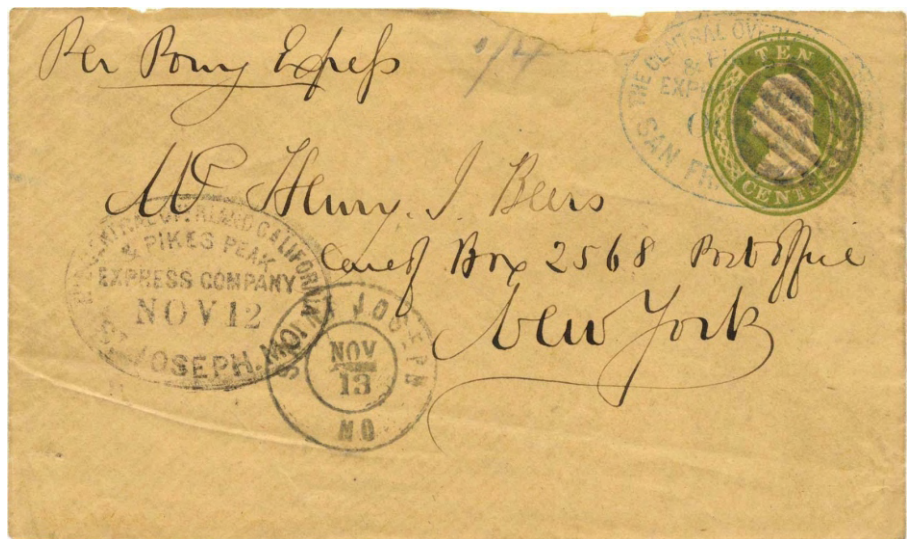 Per Pony Express
1/4
THE CENTRAL OVERL
EXP
SAN FR
TEN
CENTS
Mr Henry. J. Beers
Care of Box 2568 Post Office
New York
CENTRAL OVERLAND CALIFORNIA
& PIKES PEAK
EXPRESS COMPANY
NOV 12
ST JOSEPH, MO.
SAINT JOSEPH
NOV
13
MO